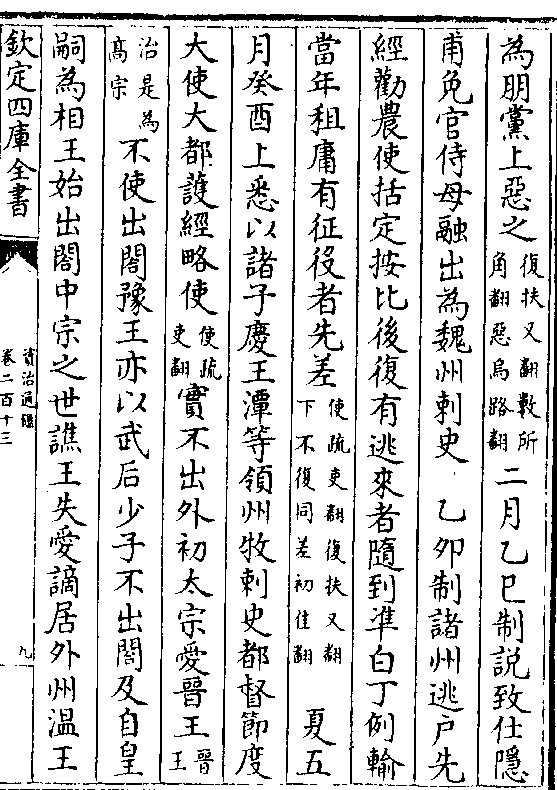 為朋黨上惡之復扶又翻數所角翻惡烏路翻二月乙巳制説致仕隱
甫免官侍母融出為魏州刺史 乙卯制諸州逃户先
經勸農使括定按比後復有逃來者隨到準白丁例輸
當年租庸有征役者先差使疏吏翻復扶又翻下不復同差初佳翻 夏五
月癸酉上悉以諸子慶王潭等領州牧刺史都督節度
大使大都護經略使使疏吏翻實不出外初太宗愛晉王晉王
治是為高宗不使出閤豫王亦以武后少子不出閤及自皇
嗣為相王始出閤中宗之世譙王失愛謫居外州溫王
欽定四庫全書
資治通鑑
卷二百十三
九